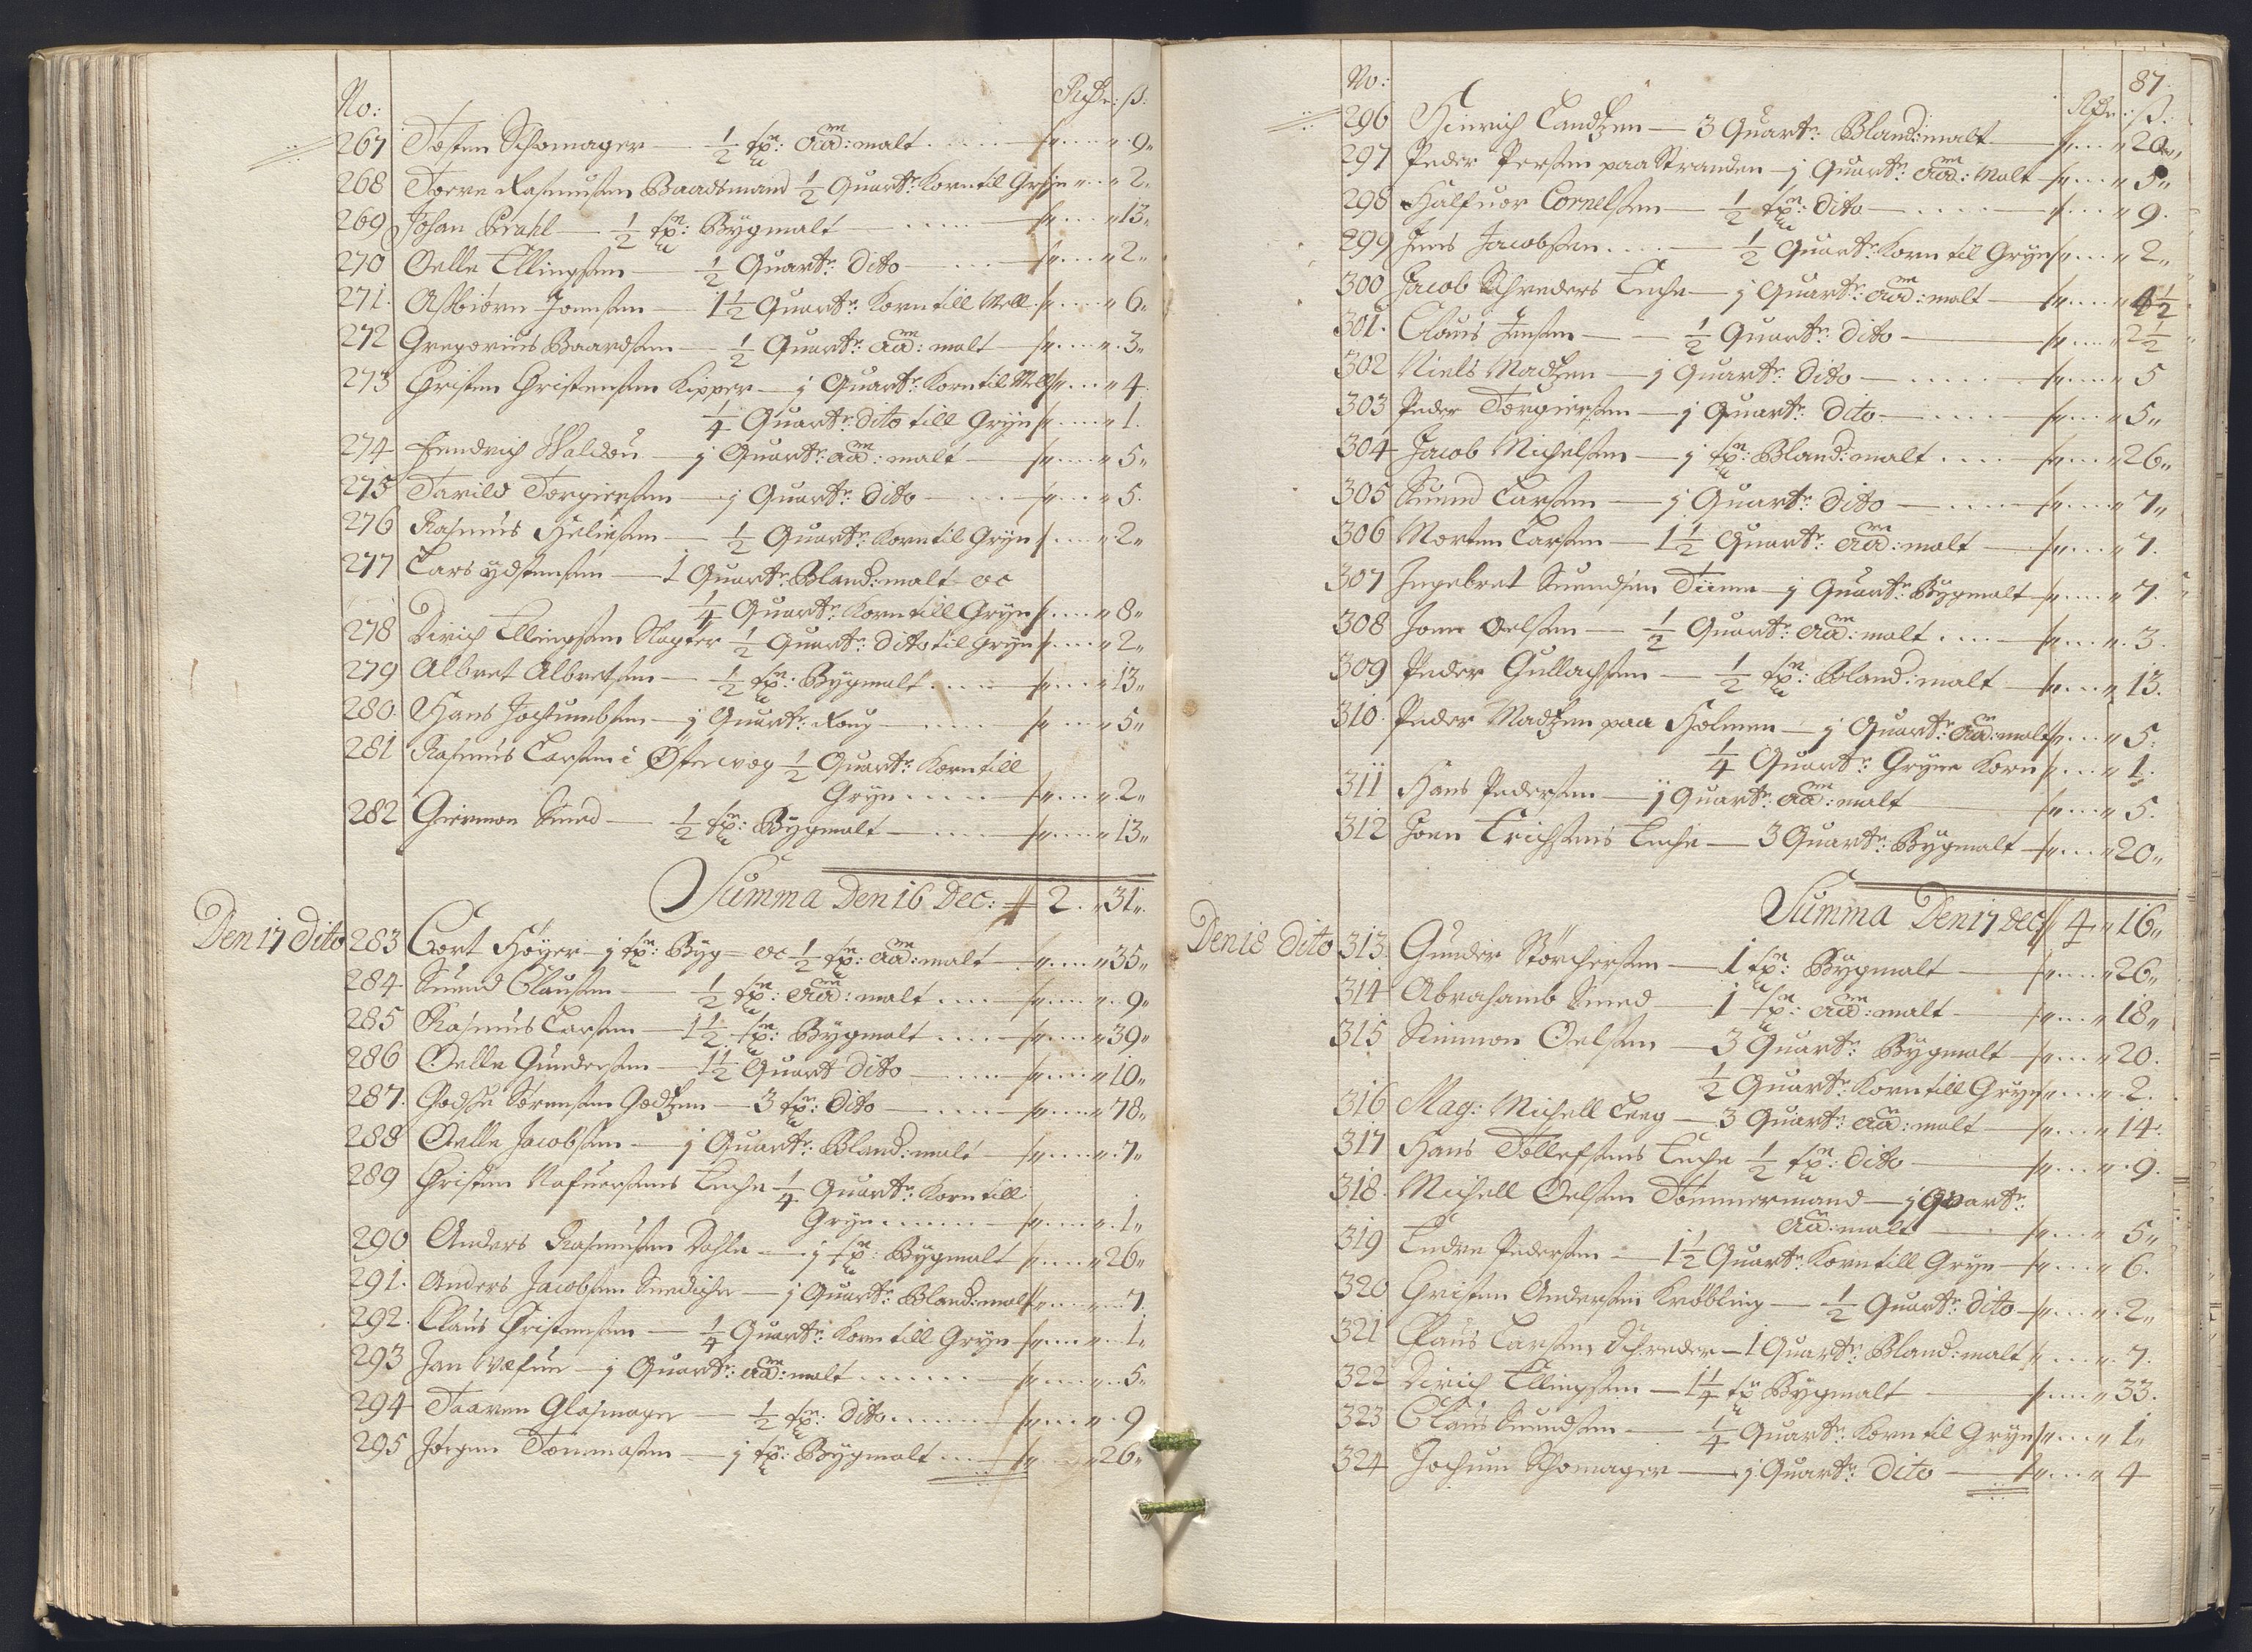 No: Rixdr: ß:
267 Tosten Schomager — ½ tp: aad: malt ..... " 9"
268 Torre Rasmusen Baadsmand ½ Quart: Korn til Gryn " 2"
269 Johan Prahl — ½ tp: Bÿgmalt — ..... " 13"
270 Oelle Ellingsen — ½ Quart: dito — " 2"
271. Asbiørn Joensen — 1½ Quart: Korn till Mell " 6"
272 Gregorius Baardsen — ½ Quart: aad: malt — " 3"
273 Christen Christensen Kipper — j Quart: Korn til Mell " 4
¼ Quart: dito till Gryn " 1.
274 Hendrich Waldou — j Quart: aad: malt — " 5"
275 Tarild Torgiersen — j Quart: dito — " 5.
276 Rasmus Helinsen — ½ Quart: Korn til Grÿn " 2"
277 Lars ÿdstensen — 1 Quart: Bland: malt oc
¼ Quart: Korn till Grÿn " 8"
278 Dirich Ellingsen Slagter ½ Quart: dito til Gryn " 2"
279 Albret Albretsen — ½ tp: Bÿgmalt ..... " 13"
280. Hans Jochumbsen — j Quart: Roug — " 5"
281 Rasmus Larsen i Østervog ½ Quart: Korn till
Gryn ..... " 2"
282 Giermon Smed — ½ tp: Bÿgmalt — " 13"
Summa Den 16 Dec: 2. " 31"
Den 17 Dito 283 Cort Høÿer — j tp: Bÿg= oc ½ tp: aad: malt — " 35"
284 Suend Clausen — ½ tp: aad: malt .... " 9"
285 Rasmus Larsen — 1½ tp: Bÿgmalt .... " 39"
286 Oelle Gundersen — 1½ Quart dito — " 10"
287. Godske Sørensen Godtzen — 3 tp: dito — " 78"
288 Oelle Jacobsen — j Quart: Bland: malt — " 7"
289 Christen Rafuersens Enche ¼ Quart: Korn till
Gryn ...... " 1"
290 Anders Rasmusen Dahle — j tp: Bÿgmalt " 26"
291. Anders Jacobsen Snediche — j Quart: Bland: malt " 7.
292. Claus Christensen — ¼ Quart: Korn till Gryn " 1"
293 Jan Wefuer — j Quart: aad: malt ....... " 5"
294 Taaren Glasmager — ½ tp: dito ....... " 9
295 Jørgen Tommasen — j tp: Bÿgmalt ... " 26"
87.
No: Rdr: ß:
296 Hinrich Landtzen — 3 Quart: Bland: malt — " 20"
297 Peder Persen paa Stranden — j Quart: aad: Malt " 5"
298 Halfuor Cornelsen — ½ tp: dito — " 9.
299 Jens Jacobsen .... — ½ Quart: Korn til Gryn " 2"
300 Jacob Schreders Enche — j Quart: aad: malt — " 4½
301. Claus Jensen — — ½ Quart: dito — " 2½
302 Niels Madtzen — j Quart: dito — " 5
303 Peder Torgiersen — j Quart: dito — " 5"
304 Jacob Michelsen — j tp: Bland: malt .... " 26"
305 Suend Larsen — j Quart: dito — " 7"
306 Morten Larsen — 1½ Quart: aad: malt — " 7.
307 Ingebret Suendsen Tiime — j Quart: Bÿgmalt — " 7.
308 Joen Oelsen — ½ Quart: aad: malt .... " 3.
309 Peder Gullachsen — ½ tp: Bland: malt — " 13.
310. Peder Madtzen paa Holmen — j Quart: aad: malt " 5.
¼ Quart: Gryne Korn " 1.
311 Hans Pedersen — j Quart: aad: malt " 5.
312 Joen Erichsens Enche — 3 Quart: Bÿgmalt — " 20"
Summa Den 17 Dec 4 " 16"
Den 18 Dito 313. Gunder Størchersen — 1 tp: Bÿgmalt — " 26"
314 Abrahamb Smed — 1 tp: aad: malt — " 18"
315 Simmon Oelsen — 3 Quart: Bÿgmalt — " 20.
½ Quart: Korn till Gryn " 2.
316 Mag: Michell Leeg — 3 Quart: aad: malt — " 14.
317 Hans Tollefsens Enche ½ tp: dito — " 9.
318. Michell Oelsen Tømmermand — j Quart:
aad: malt — " 5"
319 Endre Pedersen — 1½ Quart: Korn till Gryn — " 6.
320 Christen Andersen Krøbling — ½ Quart: dito — " 2"
321 Claus Larsen Schreder — 1 Quart: Bland: malt " 7.
322 Dirich Ellingsen — 1¼ tp Bÿgmalt " 33.
323 Claus Suendsen — ¼ Quart: Korn til Gryn " 1"
324 Jochum Schomager — j Quart: dito — " 4